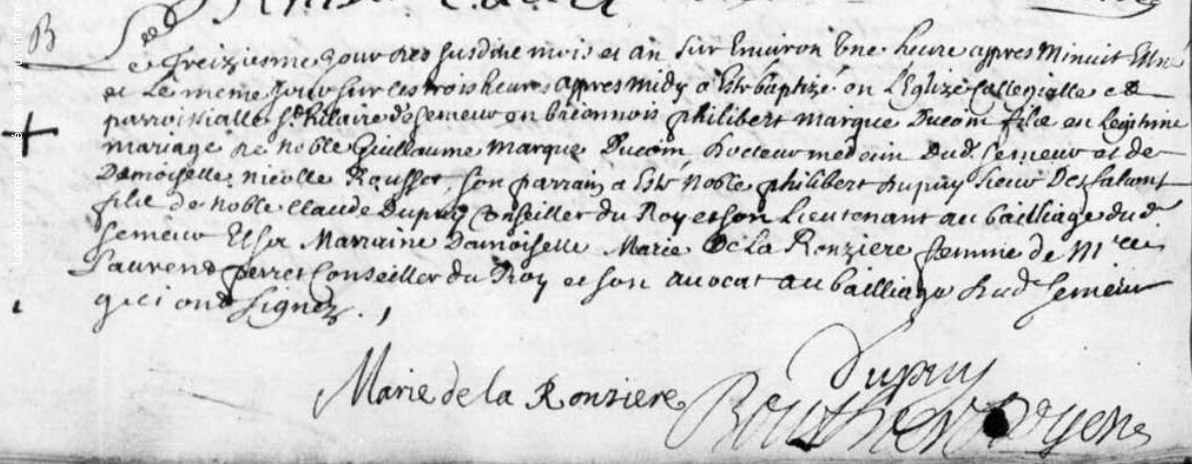 B
Le Treiziesme jour des susdits mois et an sur Environ Une heure appres Minuit Est né
et Le meme jour sur les trois heures appres midy a Esté baptizé en L'Eglize Collegialle et
parroissialle St hilaire de semeur en brionnois philibert marque Ducoin filz en Legitime
mariage de noble Guillaume Marque Ducoin Docteur medecin dud. Semeur et de
Damoiselle nicolle Rousset, son parrain a Esté Noble philibert Dupuy sieur Des falcont
filz de noble Claude Dupuy Conseiller du Roy et son Lieutenant au bailliage dud
semeur Et sa Marraine Damoiselle Marie De La Ronziere femme de Mre
Laurend perret Conseiller du Roy et son avocat au bailliage dud semeur
qui ond signez.
Marie de la Ronziere
Dupuy
Bouthier Doyen